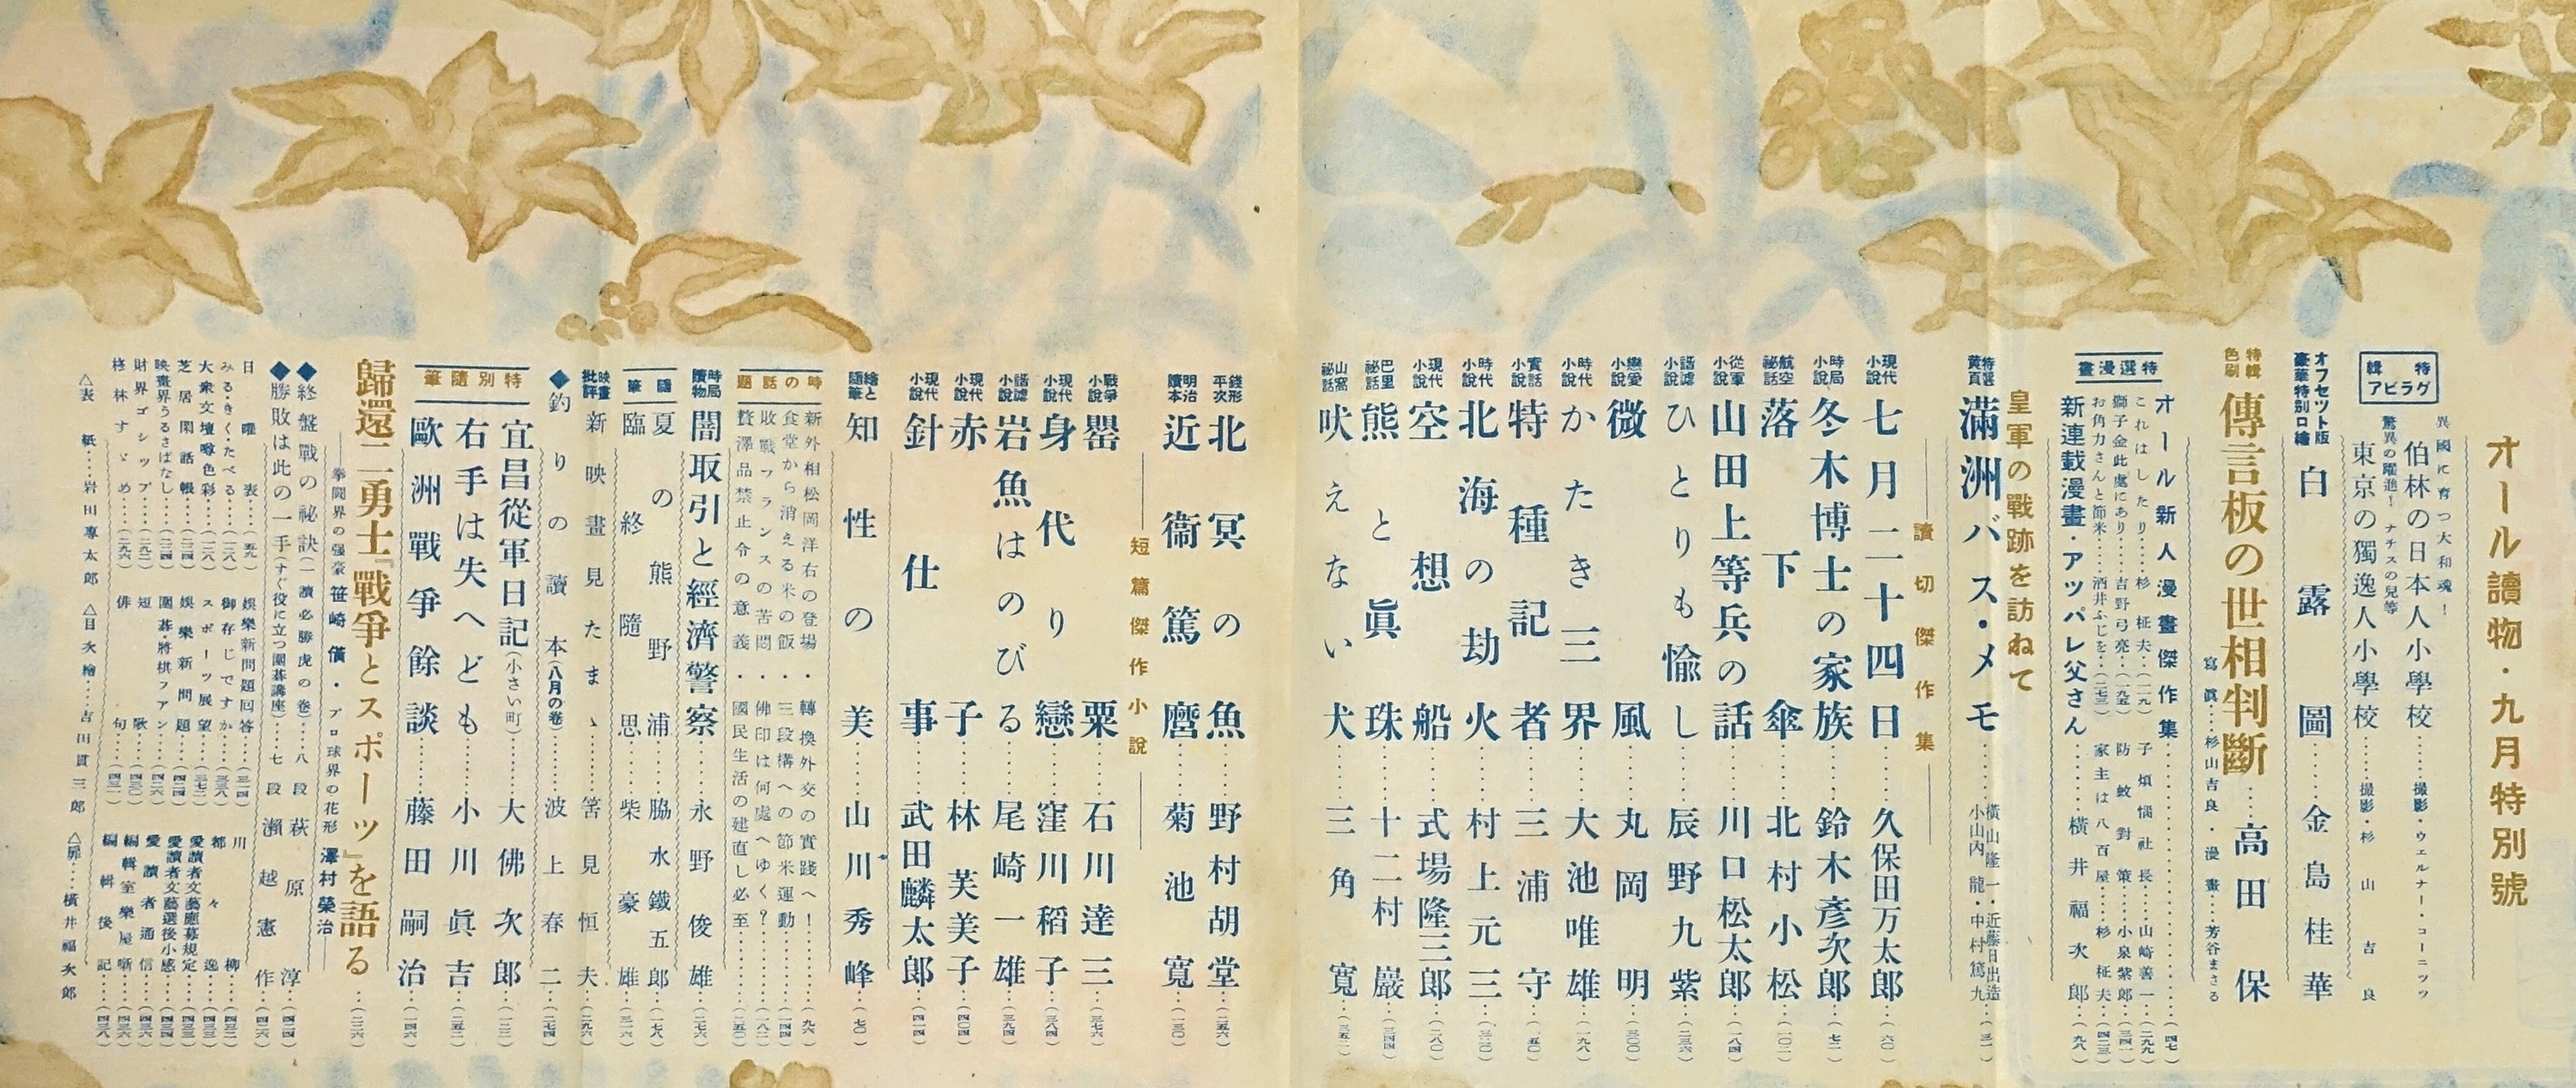 オール讀物・九月特別號
特輯グラビア
異國に育つ大和魂!
伯林の日本人小學校……撮影・ウェルナー・コーニッツ
驚異の躍進! ナチスの兒等
東京の獨逸人小學校……撮影・杉山吉良
オフセツト版豪華特別口繪 白露圖……金島桂華
特輯色刷 傳言板の世相判斷……高田保
寫眞……杉山吉良・漫畫……芳谷まさる
特選漫畫
オール新人漫畫傑作集……(四七)
これはしたり……杉柾夫…(一二九) 子煩惱社長……山崎善一…(二九九)
獅子金此處にあり……吉野弓亮…(一九五) 防蚊對策……小泉紫郎…(三四一)
お角力さんと節米……酒井ふじを…(二七三) 家主は八百屋……杉柾夫…(四二三)
新連載漫畫・アツパレ父さん……横井福次郎…(九八)
皇軍の戰跡を訪ねて
特選黄頁 滿洲バス・メモ 横山隆一・近藤日出造 小山内龍・中村篤九…(三一)
讀切傑作集
現代小說 七月二十四日……久保田万太郎…(六〇)
時局小說 冬木博士の家族……鈴木彥次郎…(七二)
航空祕話 落下傘……北村小松…(一〇二)
從軍小說 山田上等兵の話……川口松太郎…(一八四)
諧謔小說 ひとりも愉し……辰野九紫…(二三六)
戀愛小說 微風……丸岡明…(三〇〇)
時代小說 かたき三界……大池唯雄…(一九八)
實話小說 特種記者……三浦守…(一五〇)
時代小說 北海の劫火……村上元三…(三二〇)
現代小說 空想船……式場隆三郎…(二八〇)
巴里祕話 熊と眞珠……十二村巖…(三四四)
山窩祕話 吠えない犬……三角寬…(三五二)
錢形平次 北冥の魚……野村胡堂…(二五六)
明治讀本 近衞篤麿……菊池寬…(一三〇)
短篇傑作小說
戰爭小說 罌粟……石川達三…(三七六)
現代小說 身代り戀……窪川稻子…(三八四)
諧謔小說 岩魚はのびる……尾崎一雄…(三九四)
現代小說 赤子……林芙美子…(四〇四)
現代小說 針仕事……武田麟太郎…(四一四)
繪と隨筆 知性の美……山川秀峰…(七〇)
時の話題
新外相松岡洋右の登場・轉換外交の實踐へ!……(九六)
食堂から消える米の飯・三段構への節米運動……(一四四)
敗戰フランスの苦悶・佛印は何處へゆく?……(一八二)
贅澤品禁止令の意義・國民生活の建直し必至……(二五〇)
時局讀物 闇取引と經濟警察……永野俊雄…(二七六)
隨筆
夏の熊野浦……脇水鐵五郎…(一七八)
臨終隨思……柴豪雄…(三一六)
映畫批評 新映畫見たまゝ……筈見恒夫…(二九六)
◆釣りの讀本(八月の卷)…波上春二…(二七四)
特別隨筆
宜昌從軍日記(小さい町)……大佛次郎…(一二二)
右手は失へども……小川眞吉…(二五二)
歐洲戰爭餘談……藤田嗣治…(一四六)
歸還二勇士『戰爭とスポーツ』を語る……(二三六)
拳鬪界の强豪 笹崎僙・プロ球界の花形 澤村榮治
◆終盤戰の祕訣(一讀必勝虎の卷)…八段 萩原淳…(四二四)
◆勝敗は此の一手(すぐ役に立つ圍碁講座)…七段 瀨越憲作…(四二六)
日曜表……(五九) 娛樂新問題回答…(三一四) 川柳……(四三二)
みる・きく・たべる……(一二八) 御存じですか…(三三八) 都々逸……(四三三)
大衆文壇噂色彩……(一二八) スポーツ展望…(三七二) 愛讀者文藝應募規定…(四三三)
芝居閑話帳……(二三四) 娛樂新問題…(四二四) 愛讀者文藝選後小感…(四三四)
映畫界うるさばなし……(二三四) 圍碁・將棋フアン…(四二六) 愛讀者通信…(四三六)
財界ゴシツプ……(二九二) 短歌……(四三〇) 編輯室樂屋噺…(四三六)
柊林すゞめ……(二九六) 俳句……(四三一) 編輯後記……(四三八)
△表紙……岩田專太郎 △目次繪……吉田貫三郎 △扉……橫井福次郎